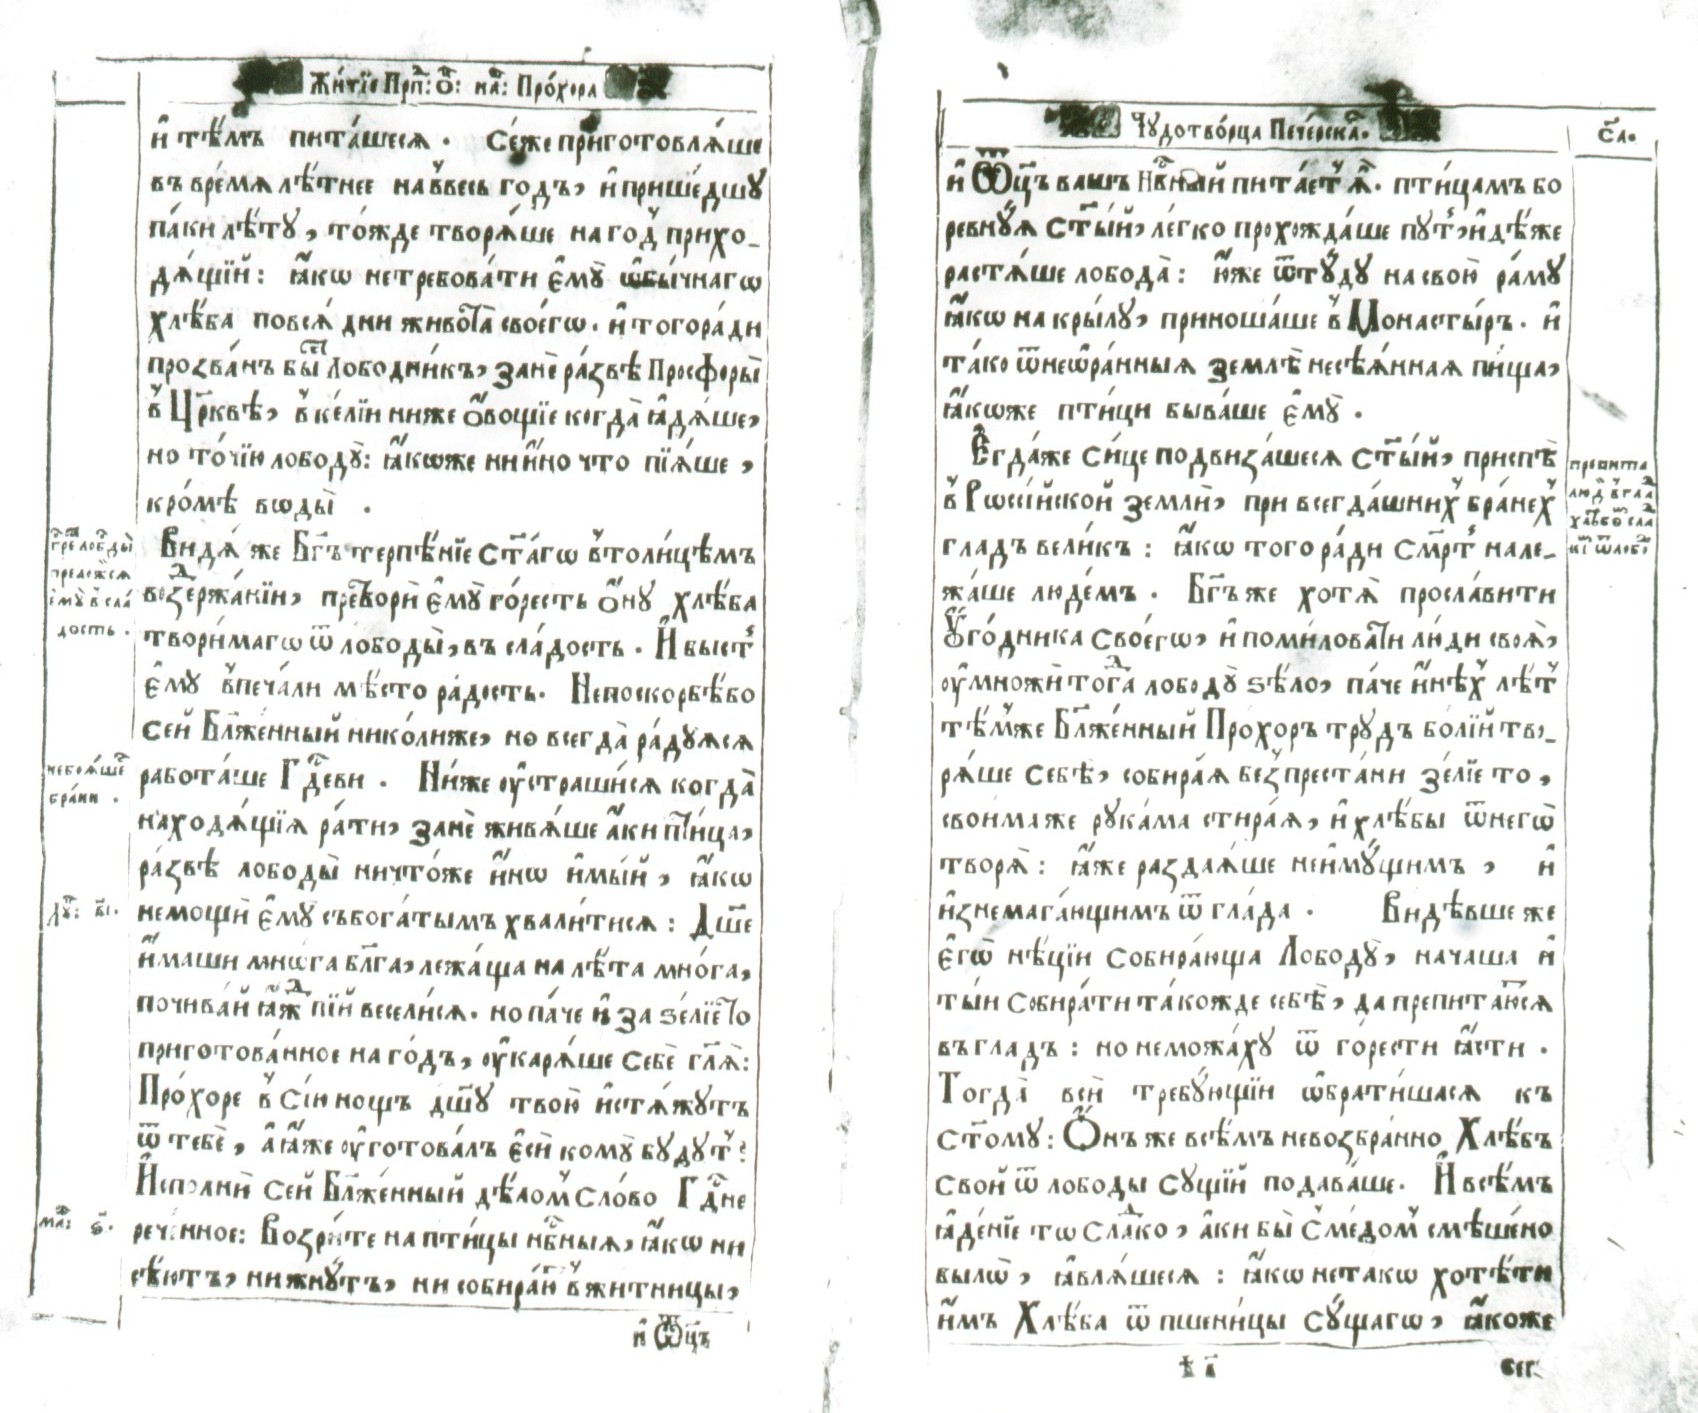 Житїе Прпⷣ: Ѻ҃: на́: Про́хора
и҆ тѣ́мъ пита́шесѧ . Се́же приготовлѧ́ше
въ вре́мѧ лѣ́тнее на в̾весь годъ, и҆ прише́дшꙋ
па́ки лѣ́тꙋ, то́жде творѧ́ше на год̾ прихо_
дѧ́щїй: ꙗ҆́кѡ нетребова́ти є҆мꙋ̀ ѡ҆бы́чнагѡ
хлѣ́ба повсѧ́ дни живоⷮа̀ своегѡ. и҆ тогора́ди
прозва́нъ бы́ Лободни́къ, занѐ ра́звѣ Просфоры̀
в̾ Цр҃квѣ, в̾ ке́лїи ниже ѻ҆́вощїе когда̀ ꙗ҆дѧ́ше,
но то́чїю лободꙋ̀: ꙗ҆́коже ни и҆́но что пїѧ́ше ,
кро́мѣ воды̀ .
Ви́дѧ же Бг҃ъ терпѣ́нїе ст҃а́гѡ в̾толи́цѣмъ
воздержа́нїи, претворѝ є҆мꙋ̀ го́ресть ѻ҆́нꙋ хлѣ́ба
твори́магѡ ѿ лободы̀, въ сла́дость . И҆ бысть
є҆мꙋ̀ в̾печа́ли мѣ́сто ра́дость. Непоскорбѣ́бо
сей Бл҃же́нный нико́лиже, но всегда̀ ра́дꙋѧсѧ
работа́ше Гдⷭ҇еви . Ни́же ᲂу҆страши́сѧ когда̀
находѧ́щїѧ ра́ти, занѐ живѧ́ше а҆́ки пти́ца,
ра́звѣ лободы̀ ничто́же и҆́нѡ и҆мы́й , ꙗ҆́кѡ
немощѝ є҆мꙋ̀ съ бога́тымъ хвали́тисѧ : Дш҃е
и҆́маши мнѡ́га бл҃га, лежа́ща на лѣ́та мно́га,
почива́й ꙗ҆́ждь пїй весели́сѧ. но па́че и҆ за ѕе́лїе то
приготова́нное на го́дъ, ᲂу҆карѧ́ше себѐ гл҃ѧ̀:
Про́хоре в̾ сїю нощъ дш҃ꙋ твою̀ и҆стѧ́жꙋтъ
ѿ тебѐ, а҆ ꙗ҆́же ᲂу҆готова́лъ є҆сѝ комꙋ̀ бꙋ́дꙋт̾?
И҆спо́лни сей Бл҃же́нный дѣ́лом̾ Сло́во Гдⷭ҇не
рече́нное: Возри́те на пти́цы нб҃ныѧ, ꙗ҆́кѡ ни
сѣ́ютъ, ни жнꙋ́тъ, ни собира́ют̾ в̾ житницы,
и҆ Ѿц҃ъ
гѡ́ре лободы
преложсѧ
є҆мꙋ̀ в̾ сла́
дость .
небоѧ́ше
бра́ни .
Лꙋ: в҃і.
Ма: ѕ҃.
Чꙋдотво́рца Пече́рскаⷢ.
с҃а.
и҆ Ѿц҃ъ вашъ Нбⷭ҇ный пита́ет̾ ѧ. пти́цамъ бо
ревнꙋ́ѧ ст҃ы́й, ле́гко прохожда́ше пꙋ́ть, и҆дѣ́же
растѧ́ше лобода̀ : ю҆́же ѿтꙋ́дꙋ на свою̀ ра́мꙋ
ꙗ҆́кѡ на кры́лꙋ, приноша́ше в̾ Монасты́ръ . и҆
та́ко ѿнеѡра́нныѧ землѣ̀ несѣ́ѧннаѧ пи́ща,
ꙗ҆́коже пти́ци быва́ше є҆мꙋ̀ .
Є҆гда́же си́це подвиза́шесѧ ст҃ы́й, приспѣ̀
в̾ Рѡссі́йской землѝ, при всегда́шних̾ бра́нех̾
гладъ вели́къ : ꙗ҆́кѡ того ра́ди См҃рть нале_
жа́ше люде́мъ . Бг҃ъ же хотѧ̀ просла́вити
Ѹ҆го́дника Своегѡ, и҆ поми́ловаⷮи лю́ди своѧ̀,
ᲂу҆мно́жи тогда̀ лободꙋ̀ ѕѣлѡ̀, па́че и҆́нѣх̾ лѣ́т̾
тѣ́мже Бл҃же́нный Про́хоръ трꙋдъ бо́лїй тво_
рѧ́ше себѣ̀, собира́ѧ без̾преста́ни зе́лїе то ,
свои́маже рꙋка́ма стира́ѧ, и҆ хлѣ́бы ѿнегѡ̀
творѧ̀ : ꙗ҆́же раздаѧ́ше неи҆мꙋ́щимъ , и҆
и҆знемага́ющимъ ѿ гла́да . Ви́дѣвше же
є҆гѡ̀ нѣ́цїи собира́юща Лободꙋ̀, начаша и҆
ты́и собира́ти та́кожде себѣ̀, да препита́ютсѧ
въ гладъ : но неможа́хꙋ ѿ го́рести ꙗ҆́сти .
Тогда̀ всѝ требꙋ́ющїи ѡ҆брати́шасѧ къ
ст҃омꙋ : Ѻ҆́нъ же всѣ́мъ невозбра́нно Хлѣ́бъ
Свой ѿ лободы сꙋщїй подава́ше. И҆ всѣ́мъ
ꙗ҆де́нїе тѡ сла́дко , а҆́ки бы̀ с̾ме́дом̾ смѣше́но
былѡ̀, ꙗ҆влѧ́шесѧ : ꙗ҆́кѡ нетакѡ хотѣ́ти
и҆́мъ Хлѣ́ба ѿ пшени́цы сꙋ́щагѡ , ꙗ҆́коже
сег
препита
люд в̾ гла
хлѣбо сла
кі ѿ лобо